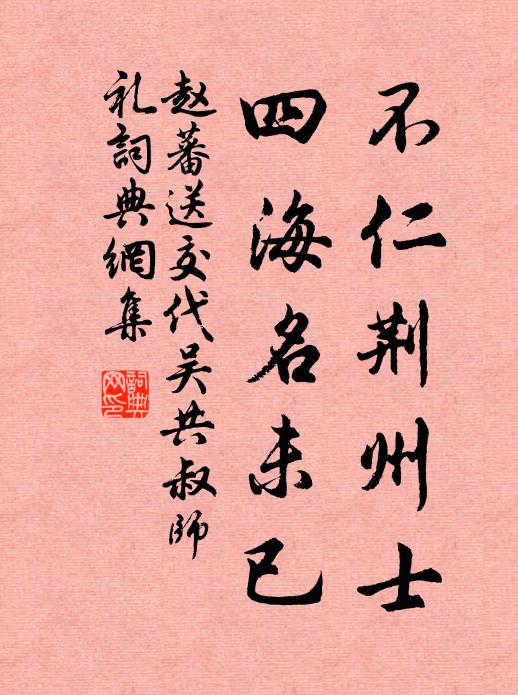 不仁荆州士
四海名未已
赵蕃送交代吴共叔師
礼詞典網集
詞典
网印